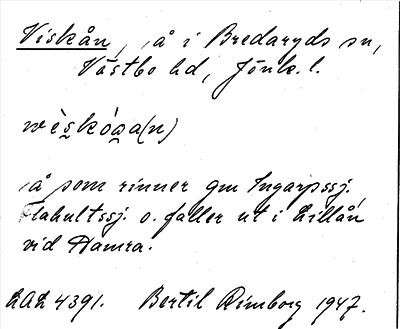 Viskån, å i Bredaryds sn,
Västbo hd, Jönk. l.
wèskóa̰(n)
å som rinner gm Ingarpssj.,
Flahultssj. o. faller ut i Lillån
vid Hamra.
LAL 4391. Bertil Rimborg 1947.